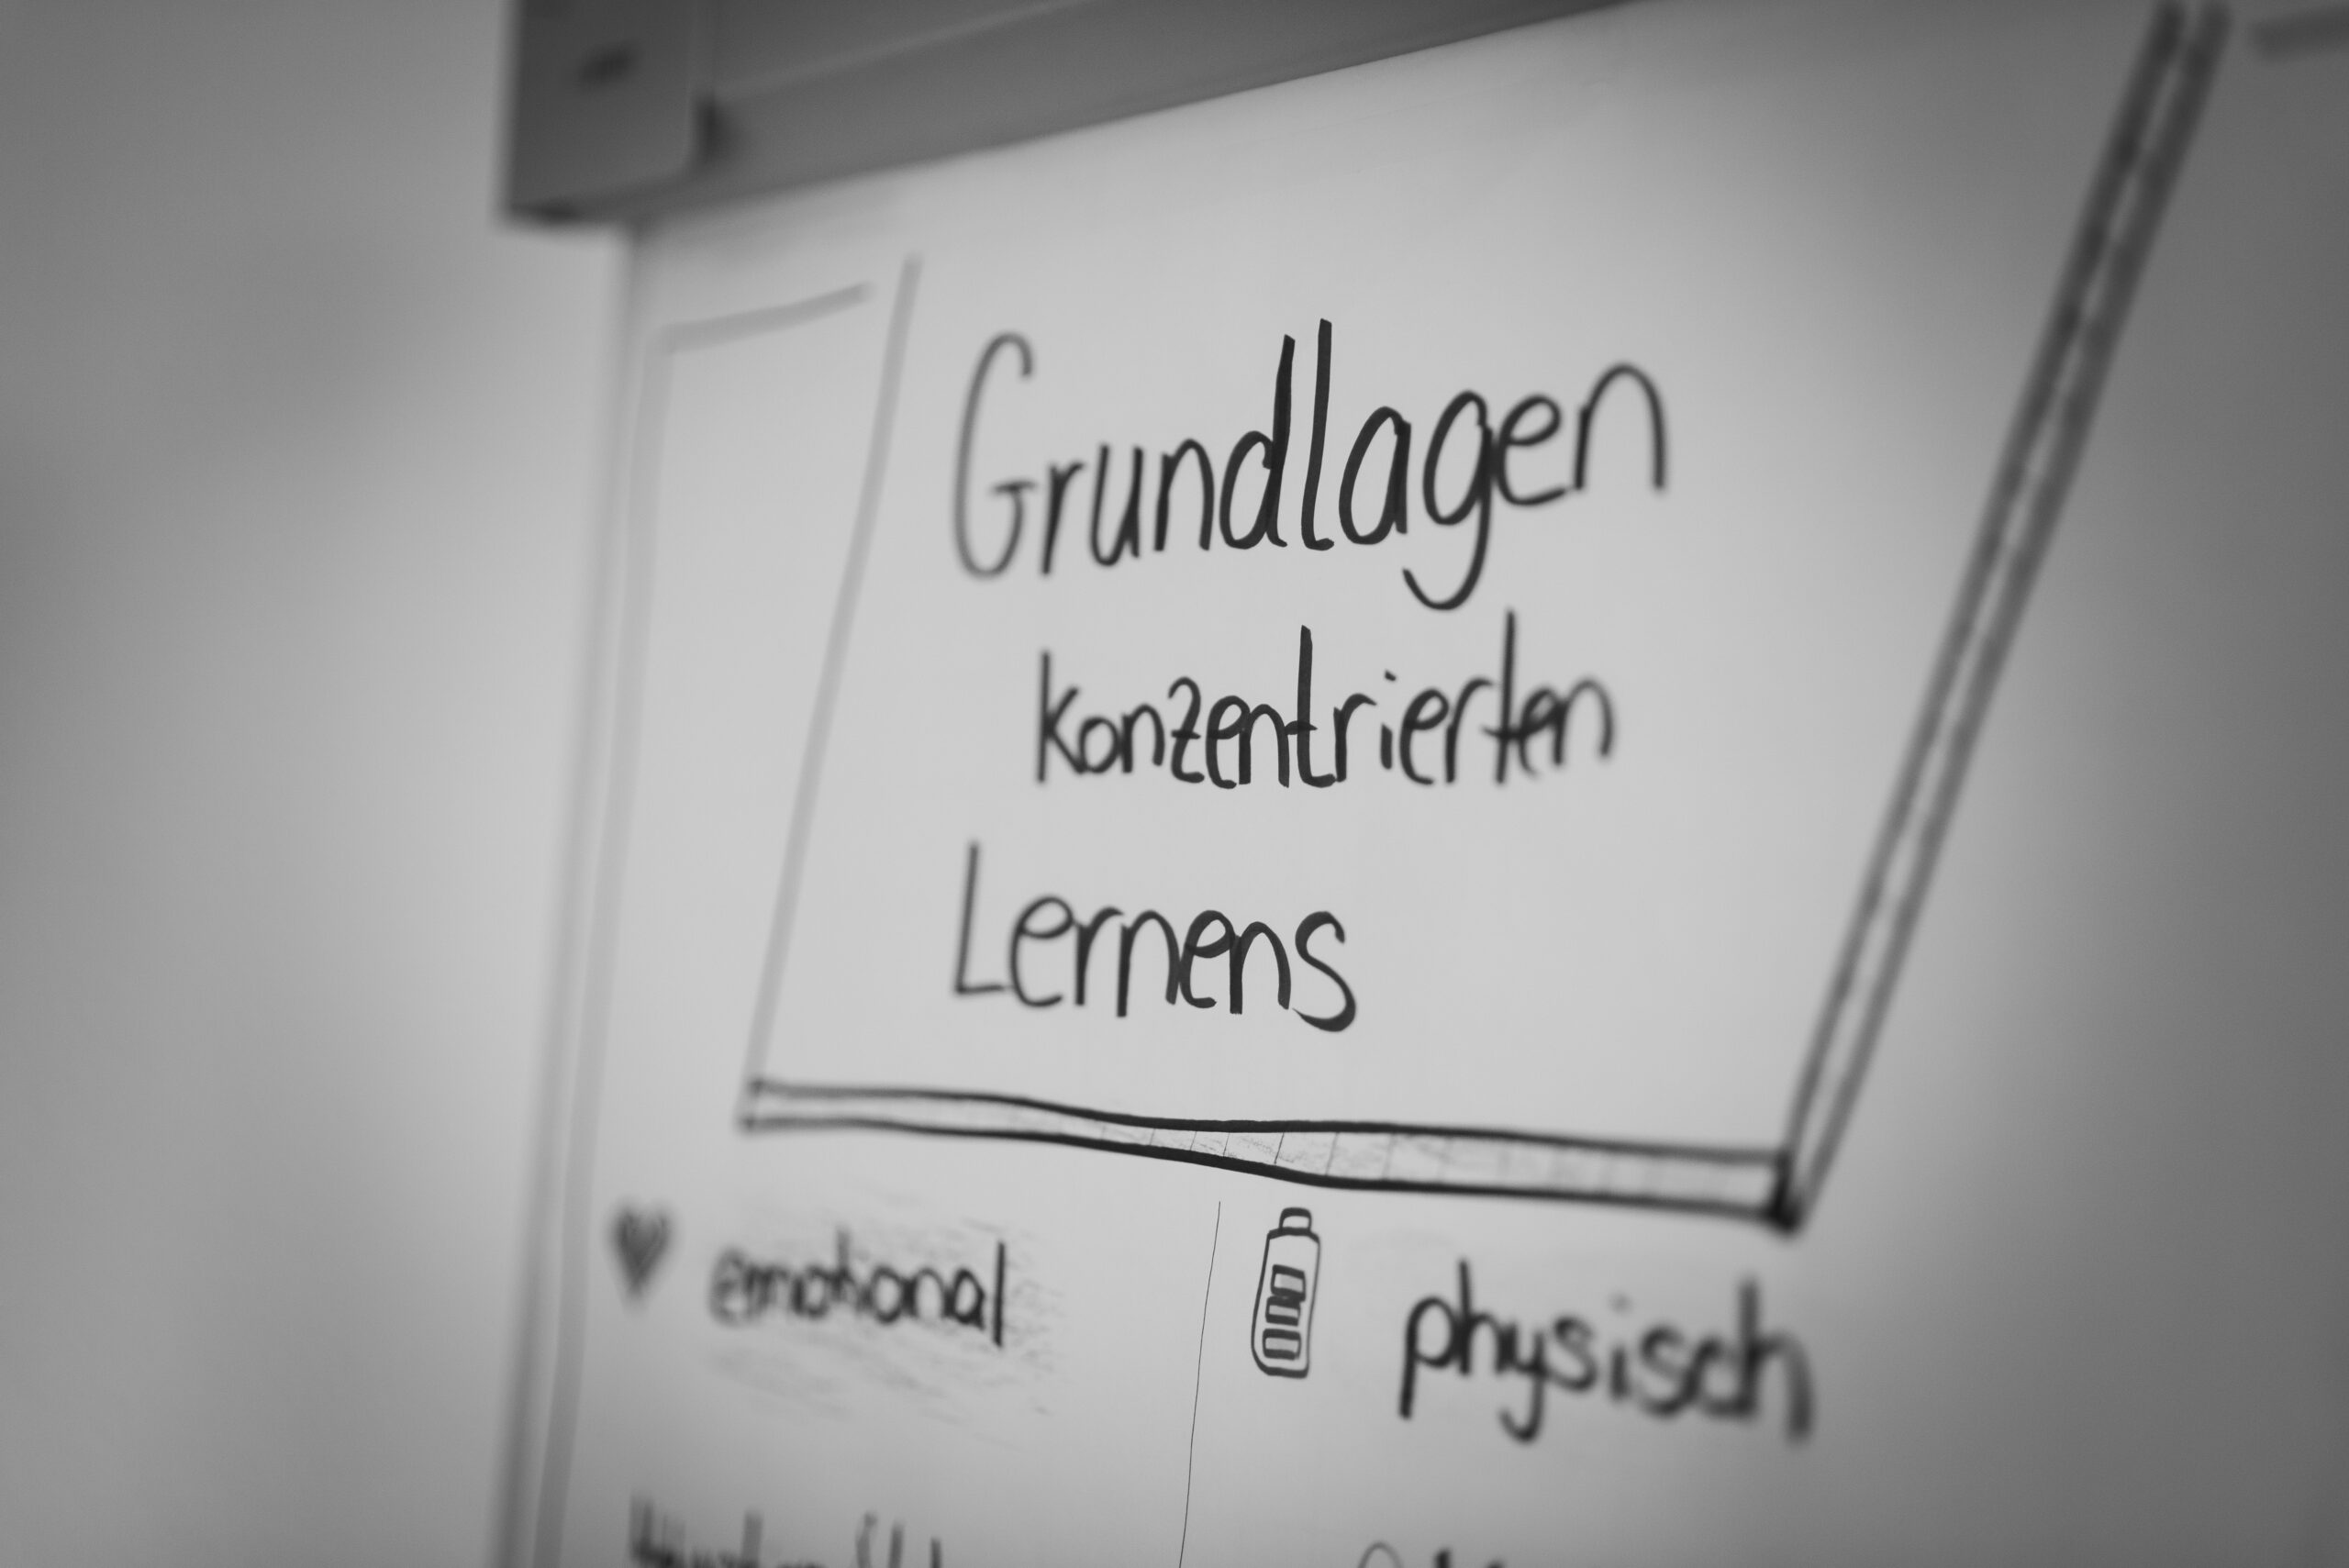 Grundlagen
konzentrierten
Lernens
emotional
physisch